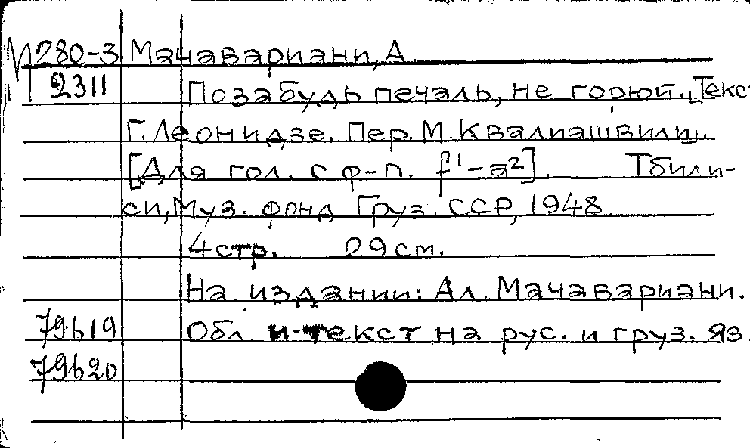 М 280-3 Мачавариани, А
2311 Позабудь печаль, не горюй. [Текст
Г. Леонидзе. Пер. М. Квалиашвили].
[Для гол. с ф-п. f¹-a²]. Тбили-
си, Муз. фонд Груз. ССР, 1948.
4 стр. 29 см.
На издании: Ал. Мачавариани.
79619 Обл. и текст на рус. и груз. яз.
79620